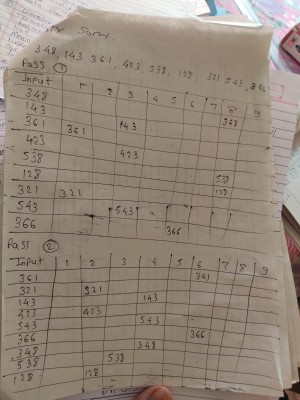 Sort.
348, 143, 361, 423, 538, 128, 321, 543, 366
Pass 1
Input 1 2 3 4 5 6 7 8 9
348 348
143 143
361 361
423 423
538 538
128 128
321 321
543 543
366 366
Pass 2
Input 1 2 3 4 5 6 7 8 9
361 361
321 321
143 143
423 423
543 543
366 366
348 348
538 538
128 128